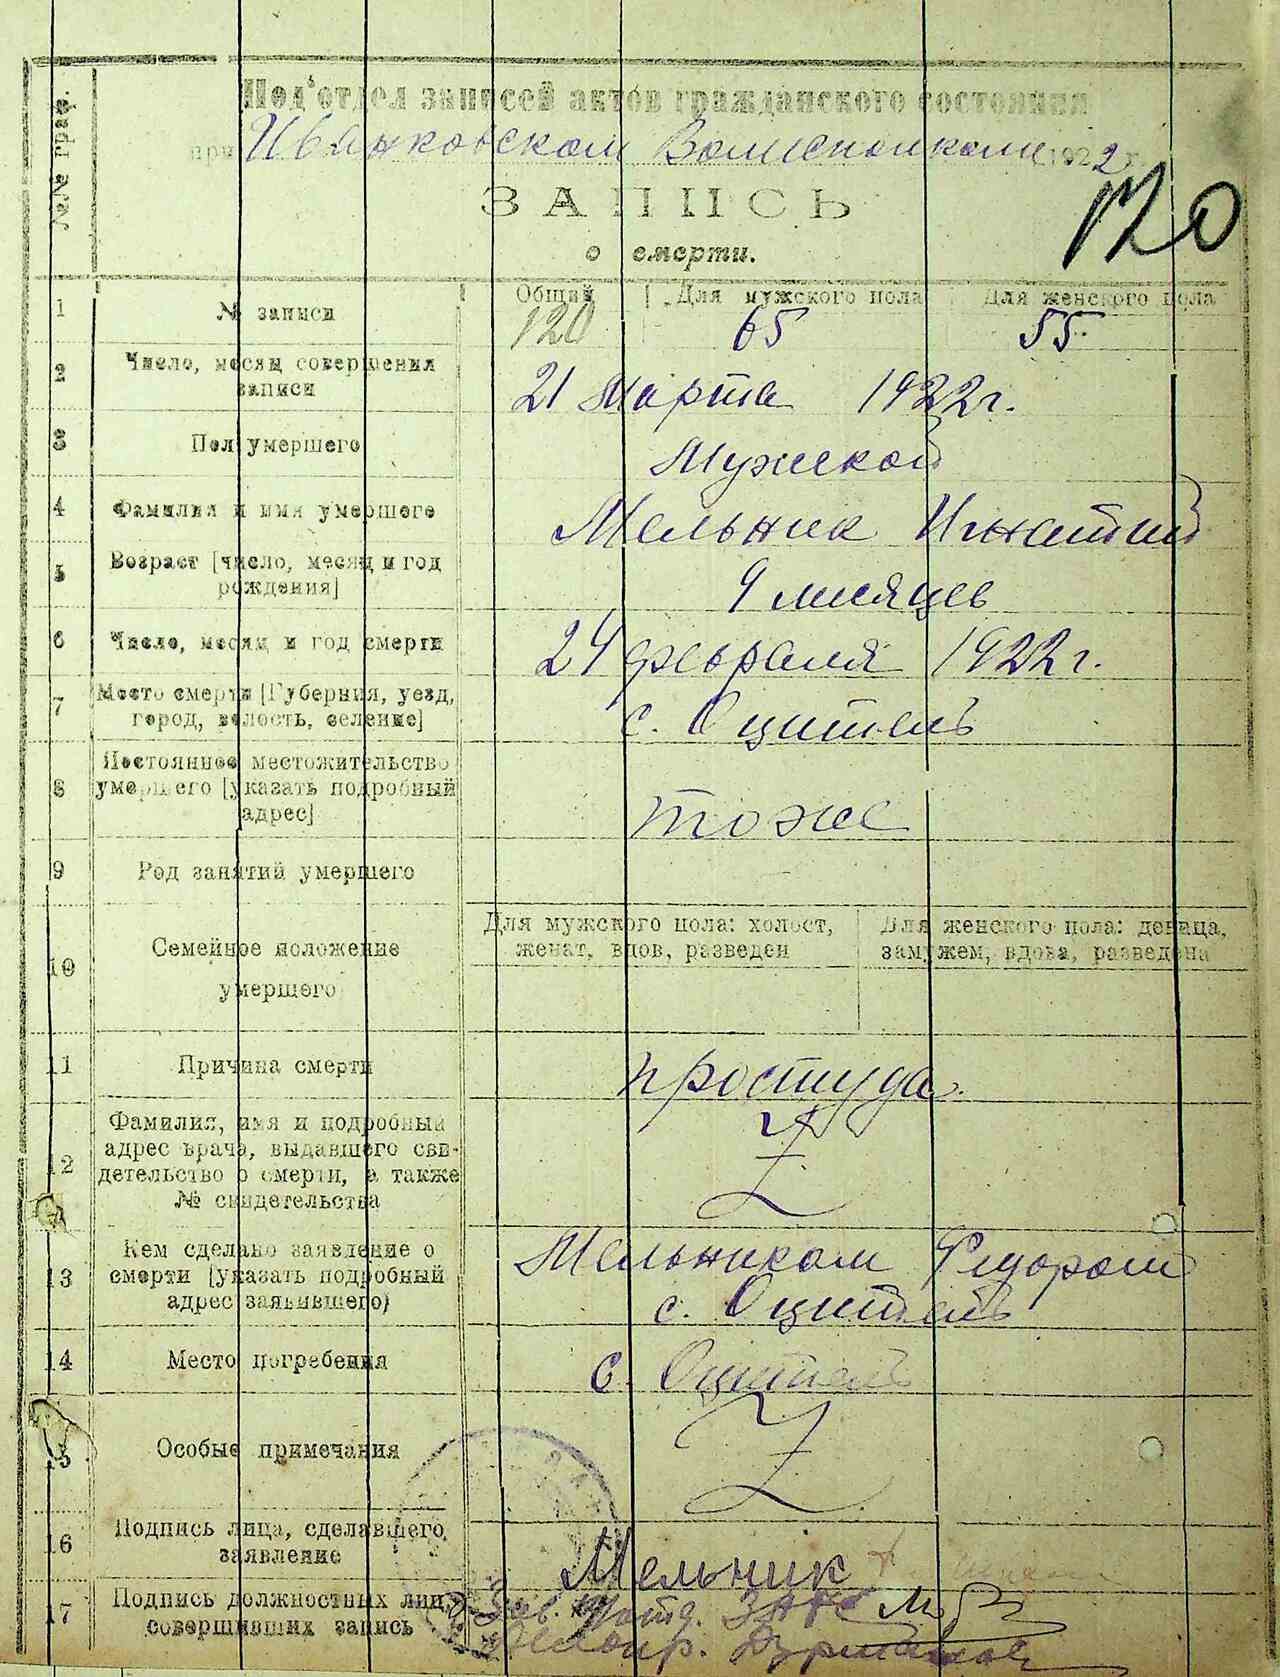 Под'отдел записей актов гражданского состояния
при Иванковском Волисполкоме 1922 г.
120
ЗАПИСЬ
о смерти.
№№ граф.
Общий Для мужского пола Для женского пола
1 № записи 120 65 55.
2 Число, месяц совершения
записи
21 Марта 1922 г.
3 Пол умершего Мужской
4 Фамилия и имя умершего Мельник Игнатий
5 Возраст [число, месяц и год
рождения]
9 мисяцев
6 Число, месяц и год смерти 24 февраля 1922 г.
7 Место смерти [Губерния, уезд,
город, волость, селение]
с. Оцитель
8 Постоянное местожительство
умершего [указать подробный
адрес]
тоже
9 Род занятий умершего
Для мужского пола: холост,
женат, вдов, разведен
Для женского пола: девица,
замужем, вдова, разведена
10 Семейное положение
умершего
11 Причина смерти простуда.
12 Фамилия, имя и подробный
адрес врача, выдавшего сви-
детельство о смерти, а также
№ свидетельства
13 Кем сделано заявление о
смерти [указать подробный
адрес заявившего)
Мельником Федором
с. Оцитель
14 Место погребения с. Оцитель
15 Особые примечания
16 Подпись лица, сделавшего
заявление
Мельник
17 Подпись должностных лиц,
совершивших запись
Зав. ЗАГС